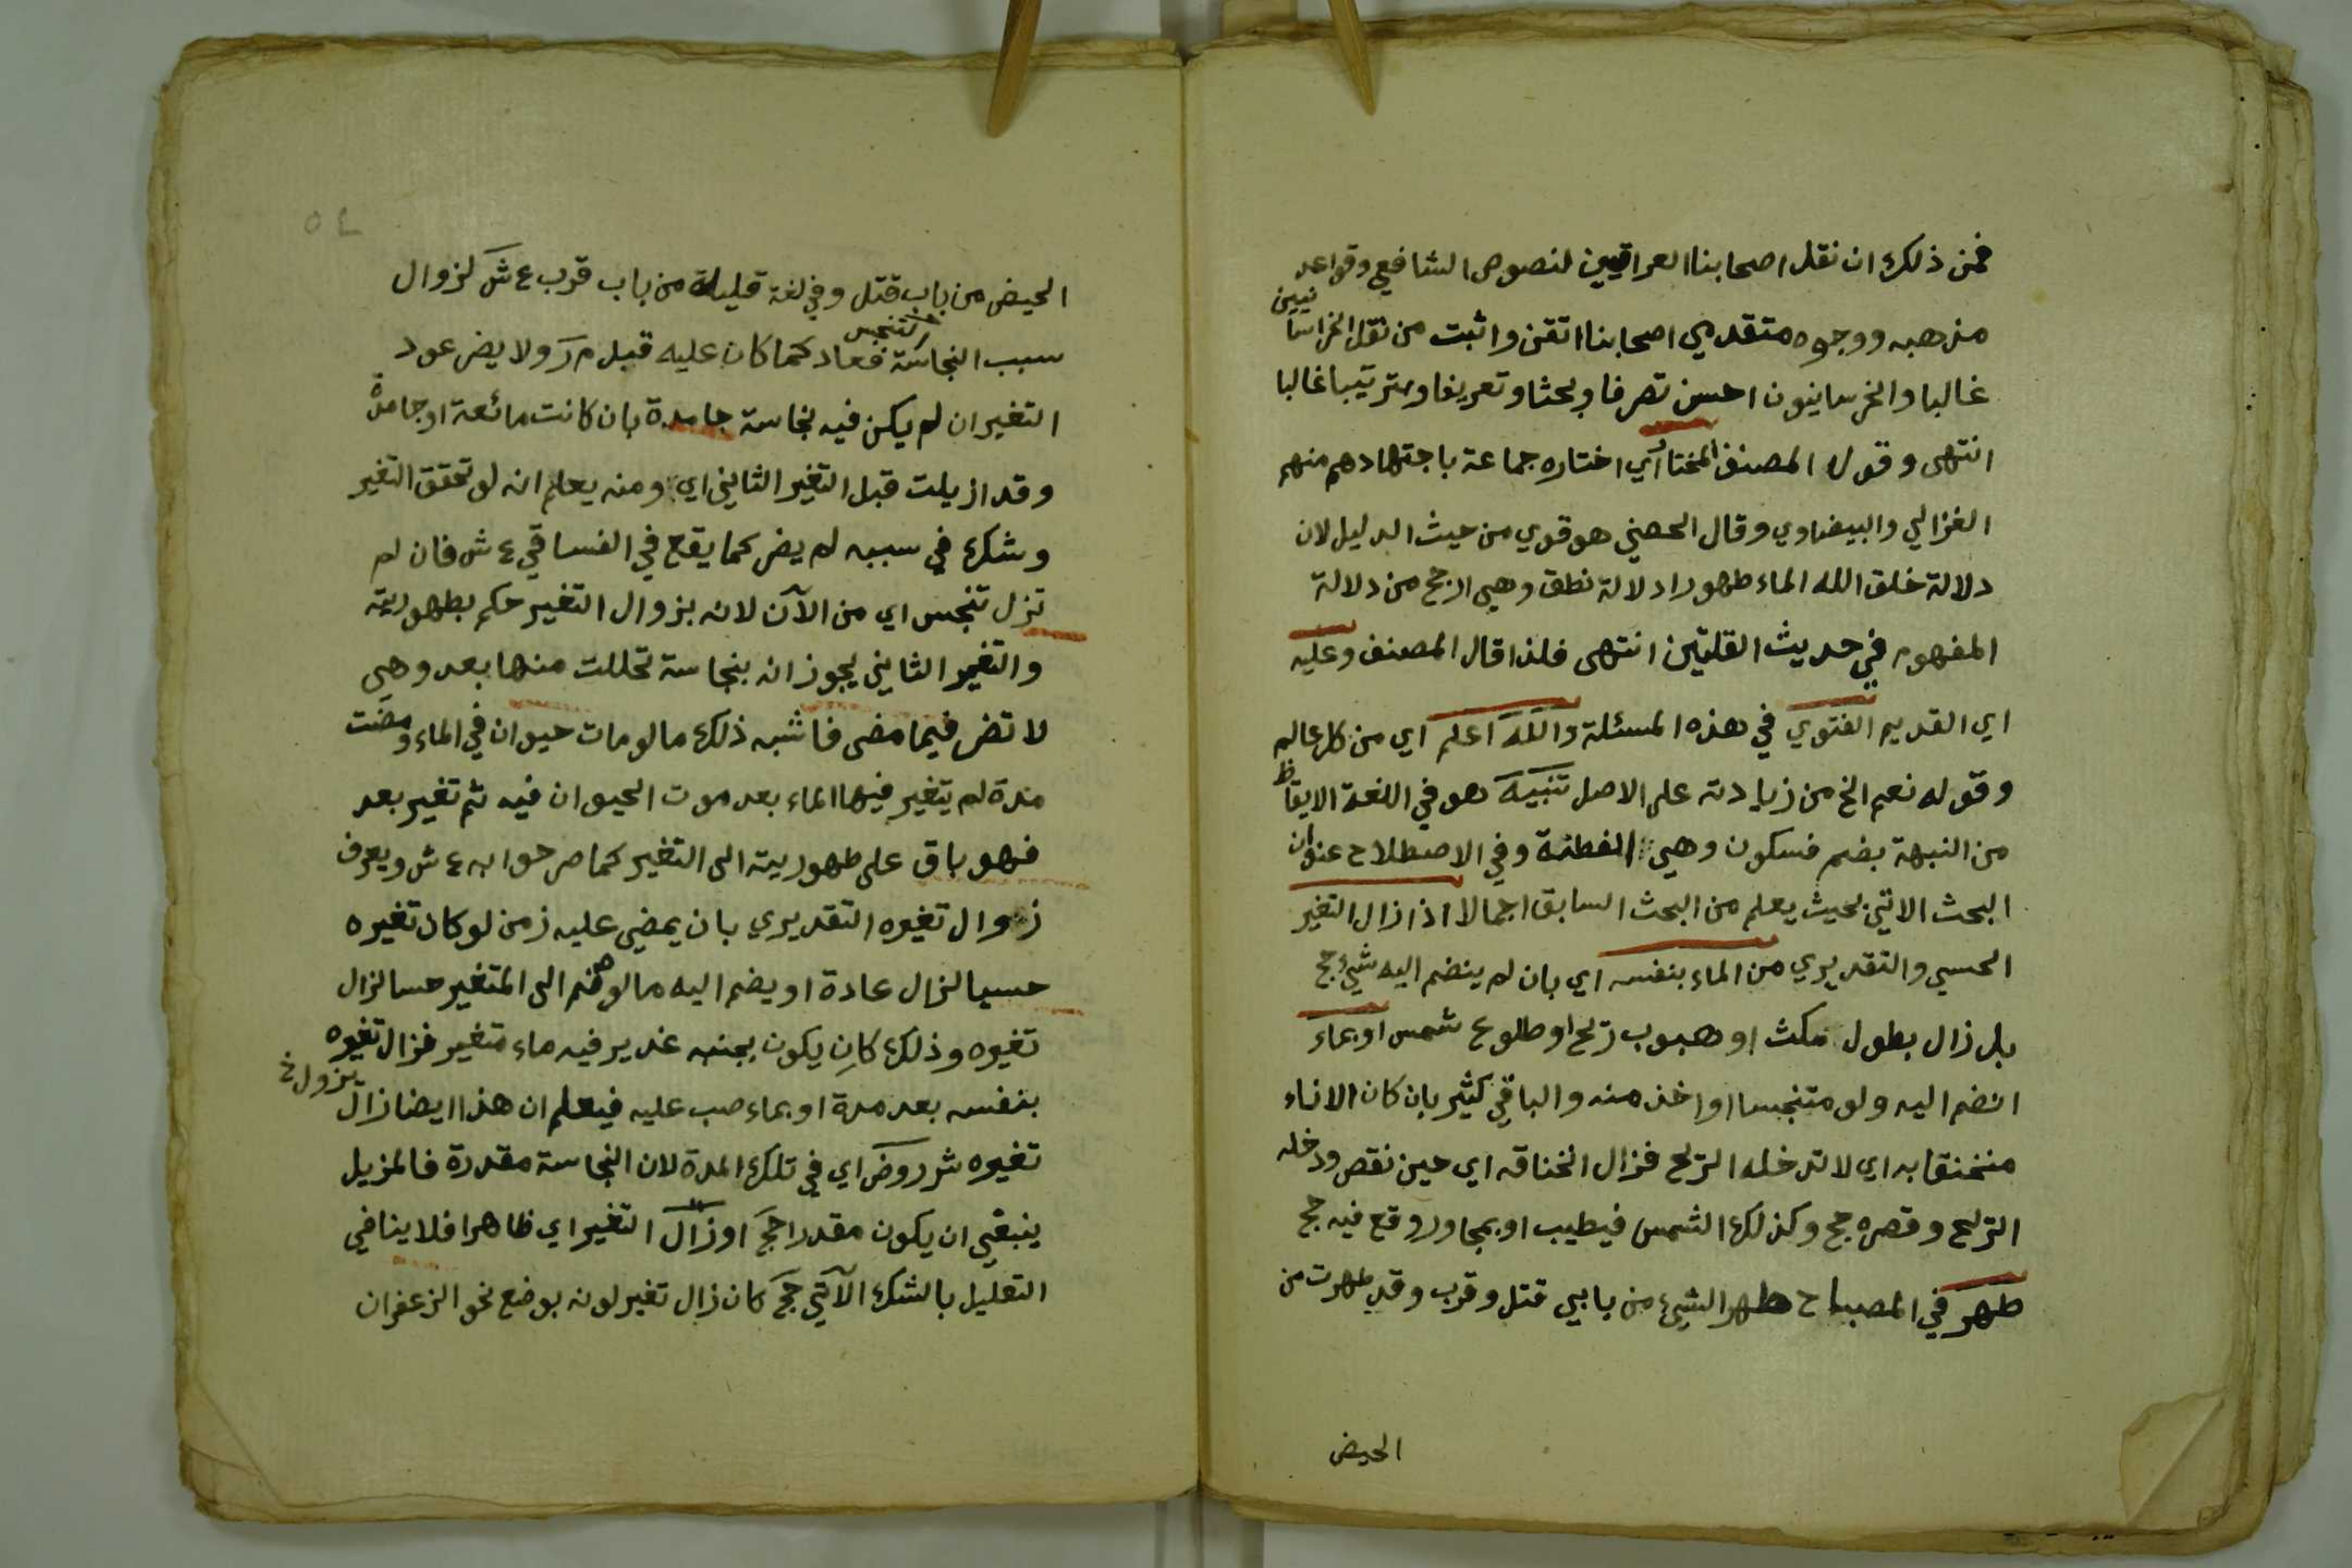 فمن ذلك ان نقل اصحابنا العراقيين لنصوص الشافعي وقواعد
مذهبه ووجوه متقدمي اصحابنا اتقن واثبت من نقل الخراسانيين
غالبا والخرسانيون احسن تصرفا وبحثا وتعريفا وترتيبا غالبا
انتهى وقول المصنف المختار اي اختاره جماعة باجتهادهم منهم
الغزالي والبيضاوي وقال الحصني هو قوي من حيث الدليل لان
دلالة خلق الله الماء طهورا دلالة نطق وهي ارجح من دلالة
المفهوم في حديث القلتين انتهى فلذا قال المصنف وعليه
اي القديم الفتوي في هذه المسئلة والله اعلم اي من كل عالم
وقوله نعم الخ من زيادته على الاصل تنبيه هو في اللغة الايقاظ
من النبهة بضم فسكون وهي الفطنة وفي الاصطلاح عنوان
البحث الاتي بحيث يعلم من البحث السابق اجمالا اذا زال التغير
الحسي والتقديري من الماء بنفسه اي بان لم ينضم اليه شيء حج
بل زال بطول مكث او هبوب ريح او طلوع شمس او بماء
انضم اليه ولو متنجسا او اخذ منه والباقي كثير بان كان الاناء
منخنقا به اي لا تدخله الريح فزال انخناقه اي حين نقص ودخله
الريح وقصره حج وكذلك الشمس فيطيب او بمجاور وقع فيه حج
طهر في المصباح طهر الشيء من بابي قتل وقرب وقد طهرت من
الحيض
٥٤
الحيض من باب قتل وفي لغة قليلة من باب قرب ع ش لزوال
سبب النجاسة التنجس فعاد كما كان عليه قبل م ر ولا يضر عود
التغير ان لم يكن فيه نجاسة جامدة بان كانت مائعة او جامدة
وقد ازيلت قبل التغير الثاني اي ومنه يعلم انه لو تحقق التغير
وشك في سببه لم يضر كما يقع في الفساقي ع ش فان لم
تزل تنجس اي من الآن لانه بزوال التغير حكم بطهوريته
والتغير الثاني يجوز انه بنجاسة تحللت منها بعد وهي
لا تضر فيما مضى فاشبه ذلك ما لو مات حيوان في الماء ومضت
مدة لم يتغير فيها الماء بعد موت الحيوان فيه ثم تغير بعد
فهو باق على طهوريته الى التغير كما صرحوا به ع ش ويعرف
زوال تغيره التقديري بان يمضي عليه زمن لو كان تغيره
حسيا لزال عادة او يضم اليه ما لو ضم الى المتغير حسا لزال
تغيره وذلك كان يكون بجنبه غدير فيه ماء متغير فزال تغيره
بنفسه بعد مدة او بماء صب عليه فيعلم ان هذا ايضا زال يزول خ
تغيره شرروض اي في تلك المدة لان النجاسة مقدرة فالمزيل
ينبغي ان يكون مقدرا حج او زال التغير اي ظاهرا فلا ينافي
التعليل بالشك الآتي حج كان زال تغير لونه بوضع نحو الزعفران